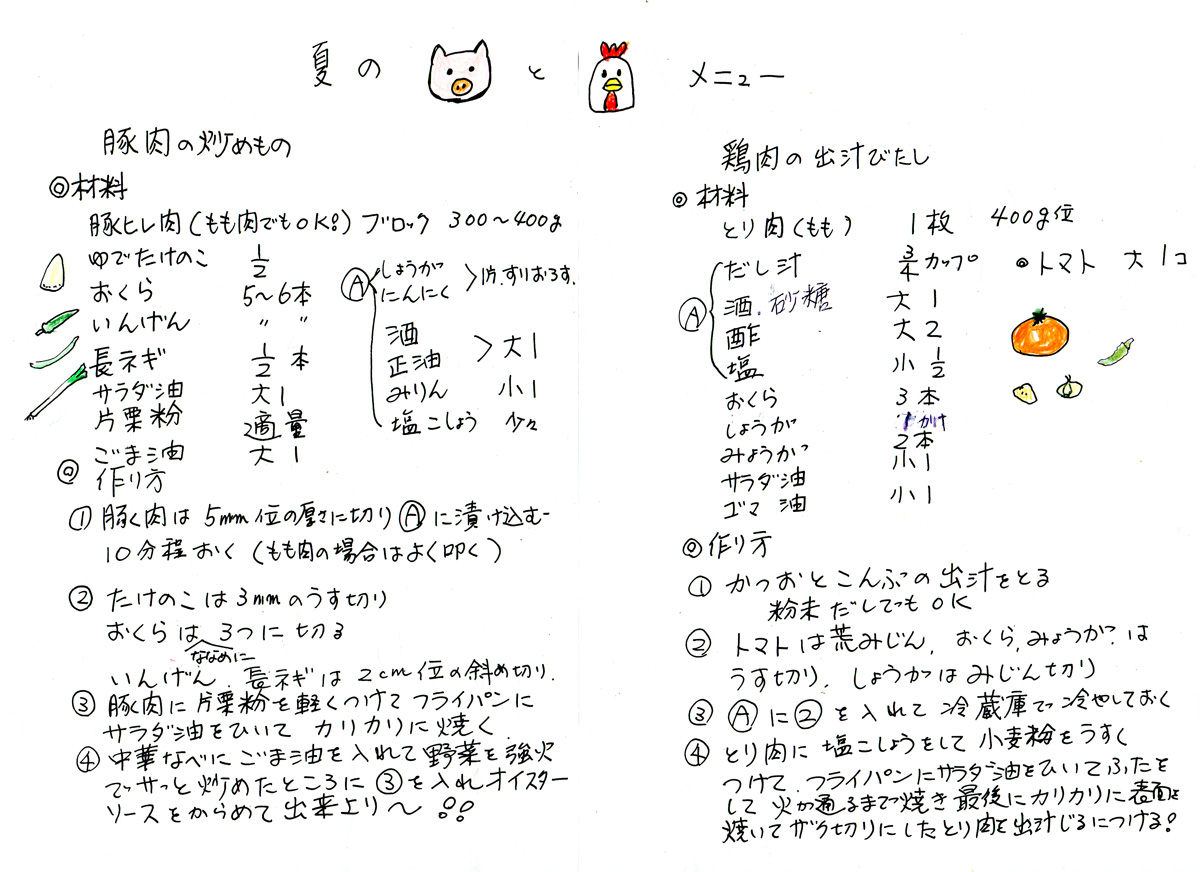 夏の と メニュー
豚肉の炒めもの
◎材料
豚ヒレ肉(もも肉でもOK!) ブロック 300〜400g
ゆでたけのこ 1/2
おくら 5〜6本
いんげん 〃 〃
長ネギ 1/2 本
サラダ油 大1
片栗粉 適量
ごま油 大1
Ⓐ
しょうが
にんにく >1片.すりおろす.
酒
正油 >大1
みりん 小1
塩こしょう 少々
◎作り方
① 豚肉は 5mm位の厚さに切り Ⓐに漬け込む
10分程おく (もも肉の場合はよく叩く)
② たけのこは3mmのうす切り
おくらは 3つに切る
ななめに
いんげん. 長ネギは 2cm位の斜め切り.
③ 豚肉に片栗粉を軽くつけてフライパンに
サラダ油をひいて カリカリに焼く
④ 中華なべにごま油を入れて野菜を強火
でサッと炒めたところに ③を入れオイスター
ソースをからめて出来上り〜
鶏肉の出汁びたし
◎ 材料
とり肉(もも) 1枚 400g位
Ⓐ
だし汁 3/4カップ
酒.砂糖 大1
酢 大2
塩 小1/2
おくら 3本
しょうが 1かけ
みょうが 2本
サラダ油 小1
ゴマ油 小1
◎トマト 大1コ
◎作り方
① かつおとこんぶの出汁をとる
粉末だしでもOK
② トマトは荒みじん, おくら,みょうがは
うす切り, しょうがはみじん切り
③ Ⓐに②を入れて冷蔵庫で冷やしておく
④ とり肉に塩こしょうをして小麦粉をうすく
つけて.フライパンにサラダ油をひいてふたを
して火が通るまで焼き最後にカリカリに表面を
焼いてザク切りにしたとり肉を出汁じるにつける!